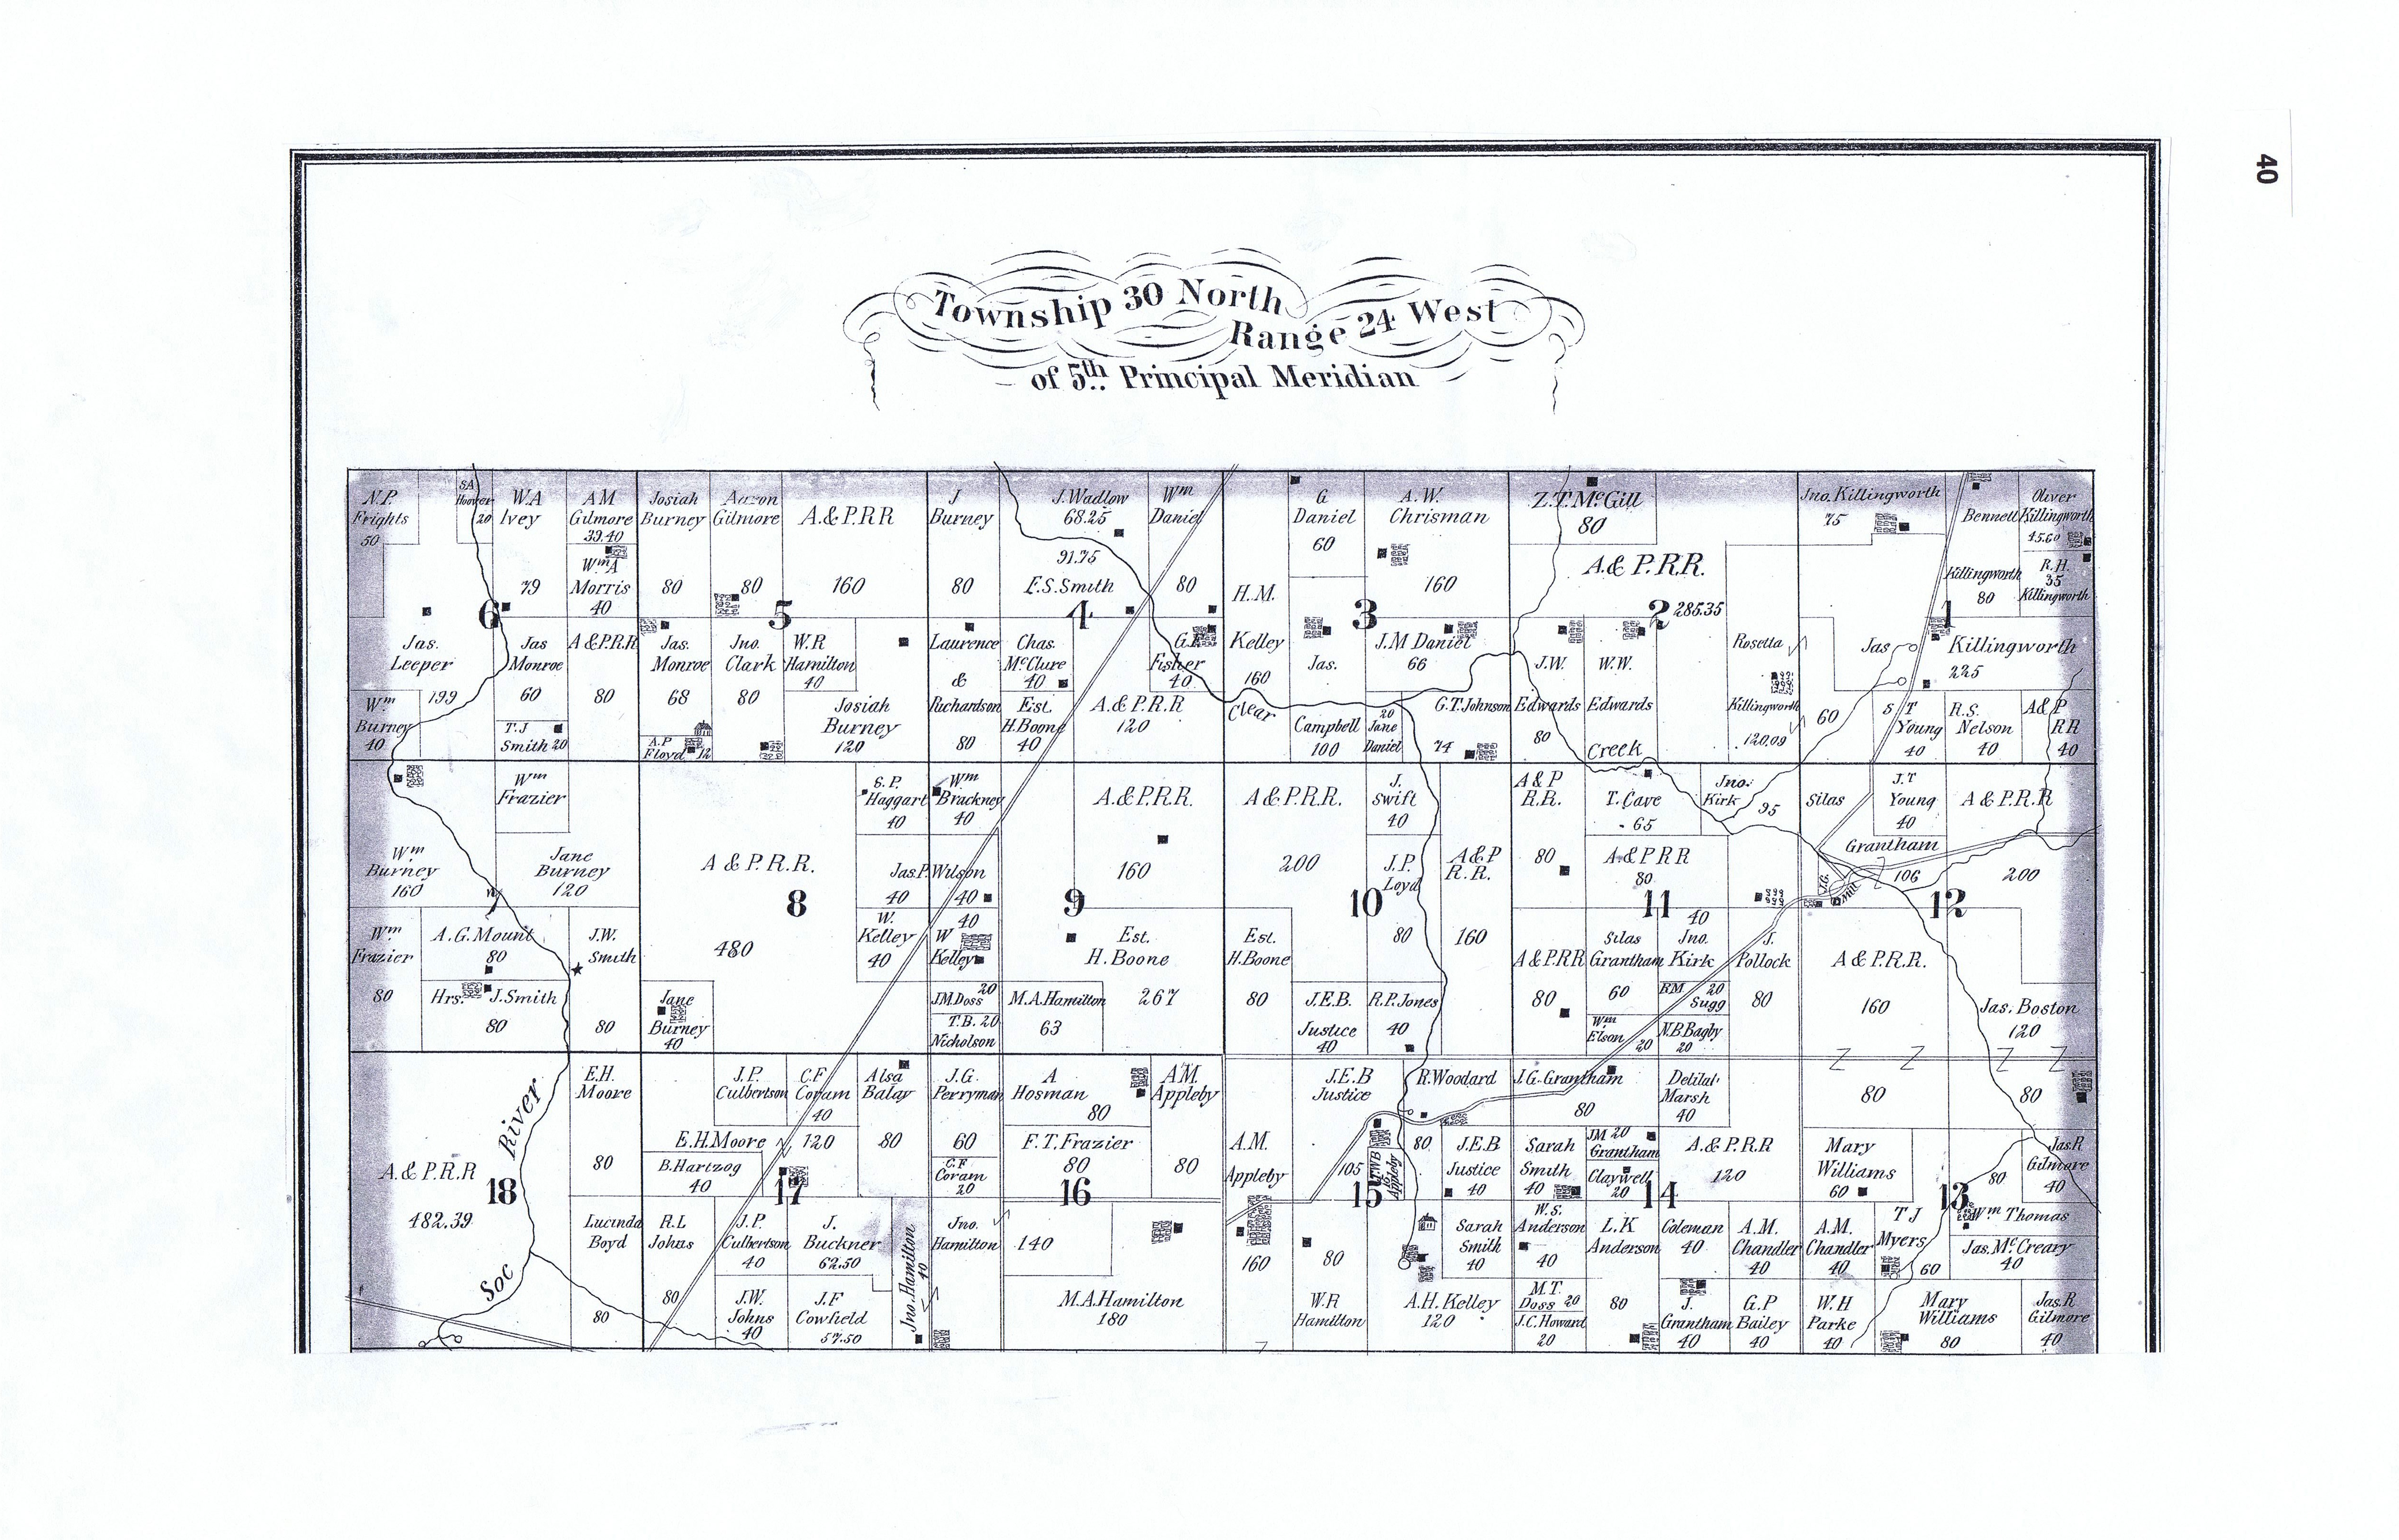 40
Township 30 North
Range 24 West
of 5th Principal Meridian
N.P.
Frights
50
S.A
Hoover
20
W.A
Ivey
79
A M
Gilmore
39.40
Wm A
Morris
40
Josiah
Burney
80
Aaron
Gilmore
80
A.& P.R.R
160
J
Burney
80
J. Wadlow
68.25
91.75
E.S. Smith
Wm
Daniel
80
H.M.
Kelley
160
G
Daniel
60
A.W.
Chrisman
160
Z.T. McGill
80
A.& P.R.R.
285.35
Jno. Killingworth
75
Bennett
Killingworth
80
Oliver
Killingworth
45.60
R.H.
35
Killingworth
6
5
4
3
2
1
Jas.
Leeper
199
Wm
Burney
40
Jas
Monroe
60
T.J
Smith 20
A & P.R.R
80
Jas.
Monroe
68
A.P
Floyd 12
Jno.
Clark
80
W.R
Hamilton
40
Josiah
Burney
120
Laurence
&
Richardson
80
Chas.
McClure
40
Est.
H. Boone
40
G.P.
Fisher
40
A.& P.R.R
120
Clear
Jas.
Campbell
100
J.M Daniel
66
20
Jane
Daniel
G.T. Johnson
74
J.W.
Edwards
80
W.W.
Edwards
Creek
Rosetta
Killingworth
120.09
Jas
Killingworth
225
60
S T
Young
40
R.S.
Nelson
40
A & P
RR
40
Wm
Frazier
Wm
Burney
160
Jane
Burney
120
7
A & P.R.R.
8
480
S.P.
Haggart
40
Wm
Brackney
40
Jas. P. Wilson
40
40
W.
Kelley
40
40
W
Kelley
A.& P.R.R.
160
9
A & P.R.R.
200
10
J.
Swift
40
J.P.
Loyd
80
A & P
R.R.
160
A & P
R.R.
80
T. Cave
65
Jno.
Kirk
95
A & P R R
80
11
Silas
Grantham
106
J.T
Young
40
A & P.R.R
200
J.G.
Mill
12
Wm
Frazier
80
A.G. Mount
80
Hrs. J. Smith
80
J.W.
Smith
80
Jane
Burney
40
20
J.M. Doss
T.B. 20
Nicholson
M.A. Hamilton
63
Est.
H. Boone
267
Est.
H. Boone
80
J.E.B.
Justice
40
R.P. Jones
40
A & P.RR
80
Silas
Grantham
60
Wm
Elson
20
40
Jno.
Kirk
R.M. 20
Sugg
N.B. Bagby
20
J.
Pollock
80
A & P.R.R.
160
Jas. Boston
120
River
Soc
A.& P.R.R
482.39
18
E.H.
Moore
80
J.P.
Culbertson
C.F
Coram
40
Alsa
Balay
80
E.H. Moore
120
B. Hartzog
40
17
J.G.
Perryman
60
C.F
Coram
20
A
Hosman
80
F.T. Frazier
80
16
A.M.
Appleby
80
A.M.
Appleby
160
J.E.B
Justice
105
15
T.W.B
Appleby
R. Woodard
80
J.E.B
Justice
40
J.G. Grantham
80
Sarah
Smith
40
J.M 20
Grantham
Claywell
20
14
Delilah
Marsh
40
A & P.R.R
120
80
80
Mary
Williams
60
13
80
Jas. R
Gilmore
40
Lucinda
Boyd
80
R.L
Johns
80
J.P.
Culbertson
40
J.W.
Johns
40
J.
Buckner
62.50
J.F
Cowfield
57.50
Jno. Hamilton
40
Jno.
Hamilton
140
M.A. Hamilton
180
80
W.R
Hamilton
A.H. Kelley
120
Sarah
Smith
40
W.S.
Anderson
40
M.T.
Doss 20
J.C. Howard
20
L.K
Anderson
80
Coleman
40
J.
Grantham
40
A.M.
Chandler
40
G.P
Bailey
40
A.M.
Chandler
40
W.H
Parke
40
T J
Myers
60
Wm Thomas
Jas. McCreary
40
Mary
Williams
80
Jas. R
Gilmore
40